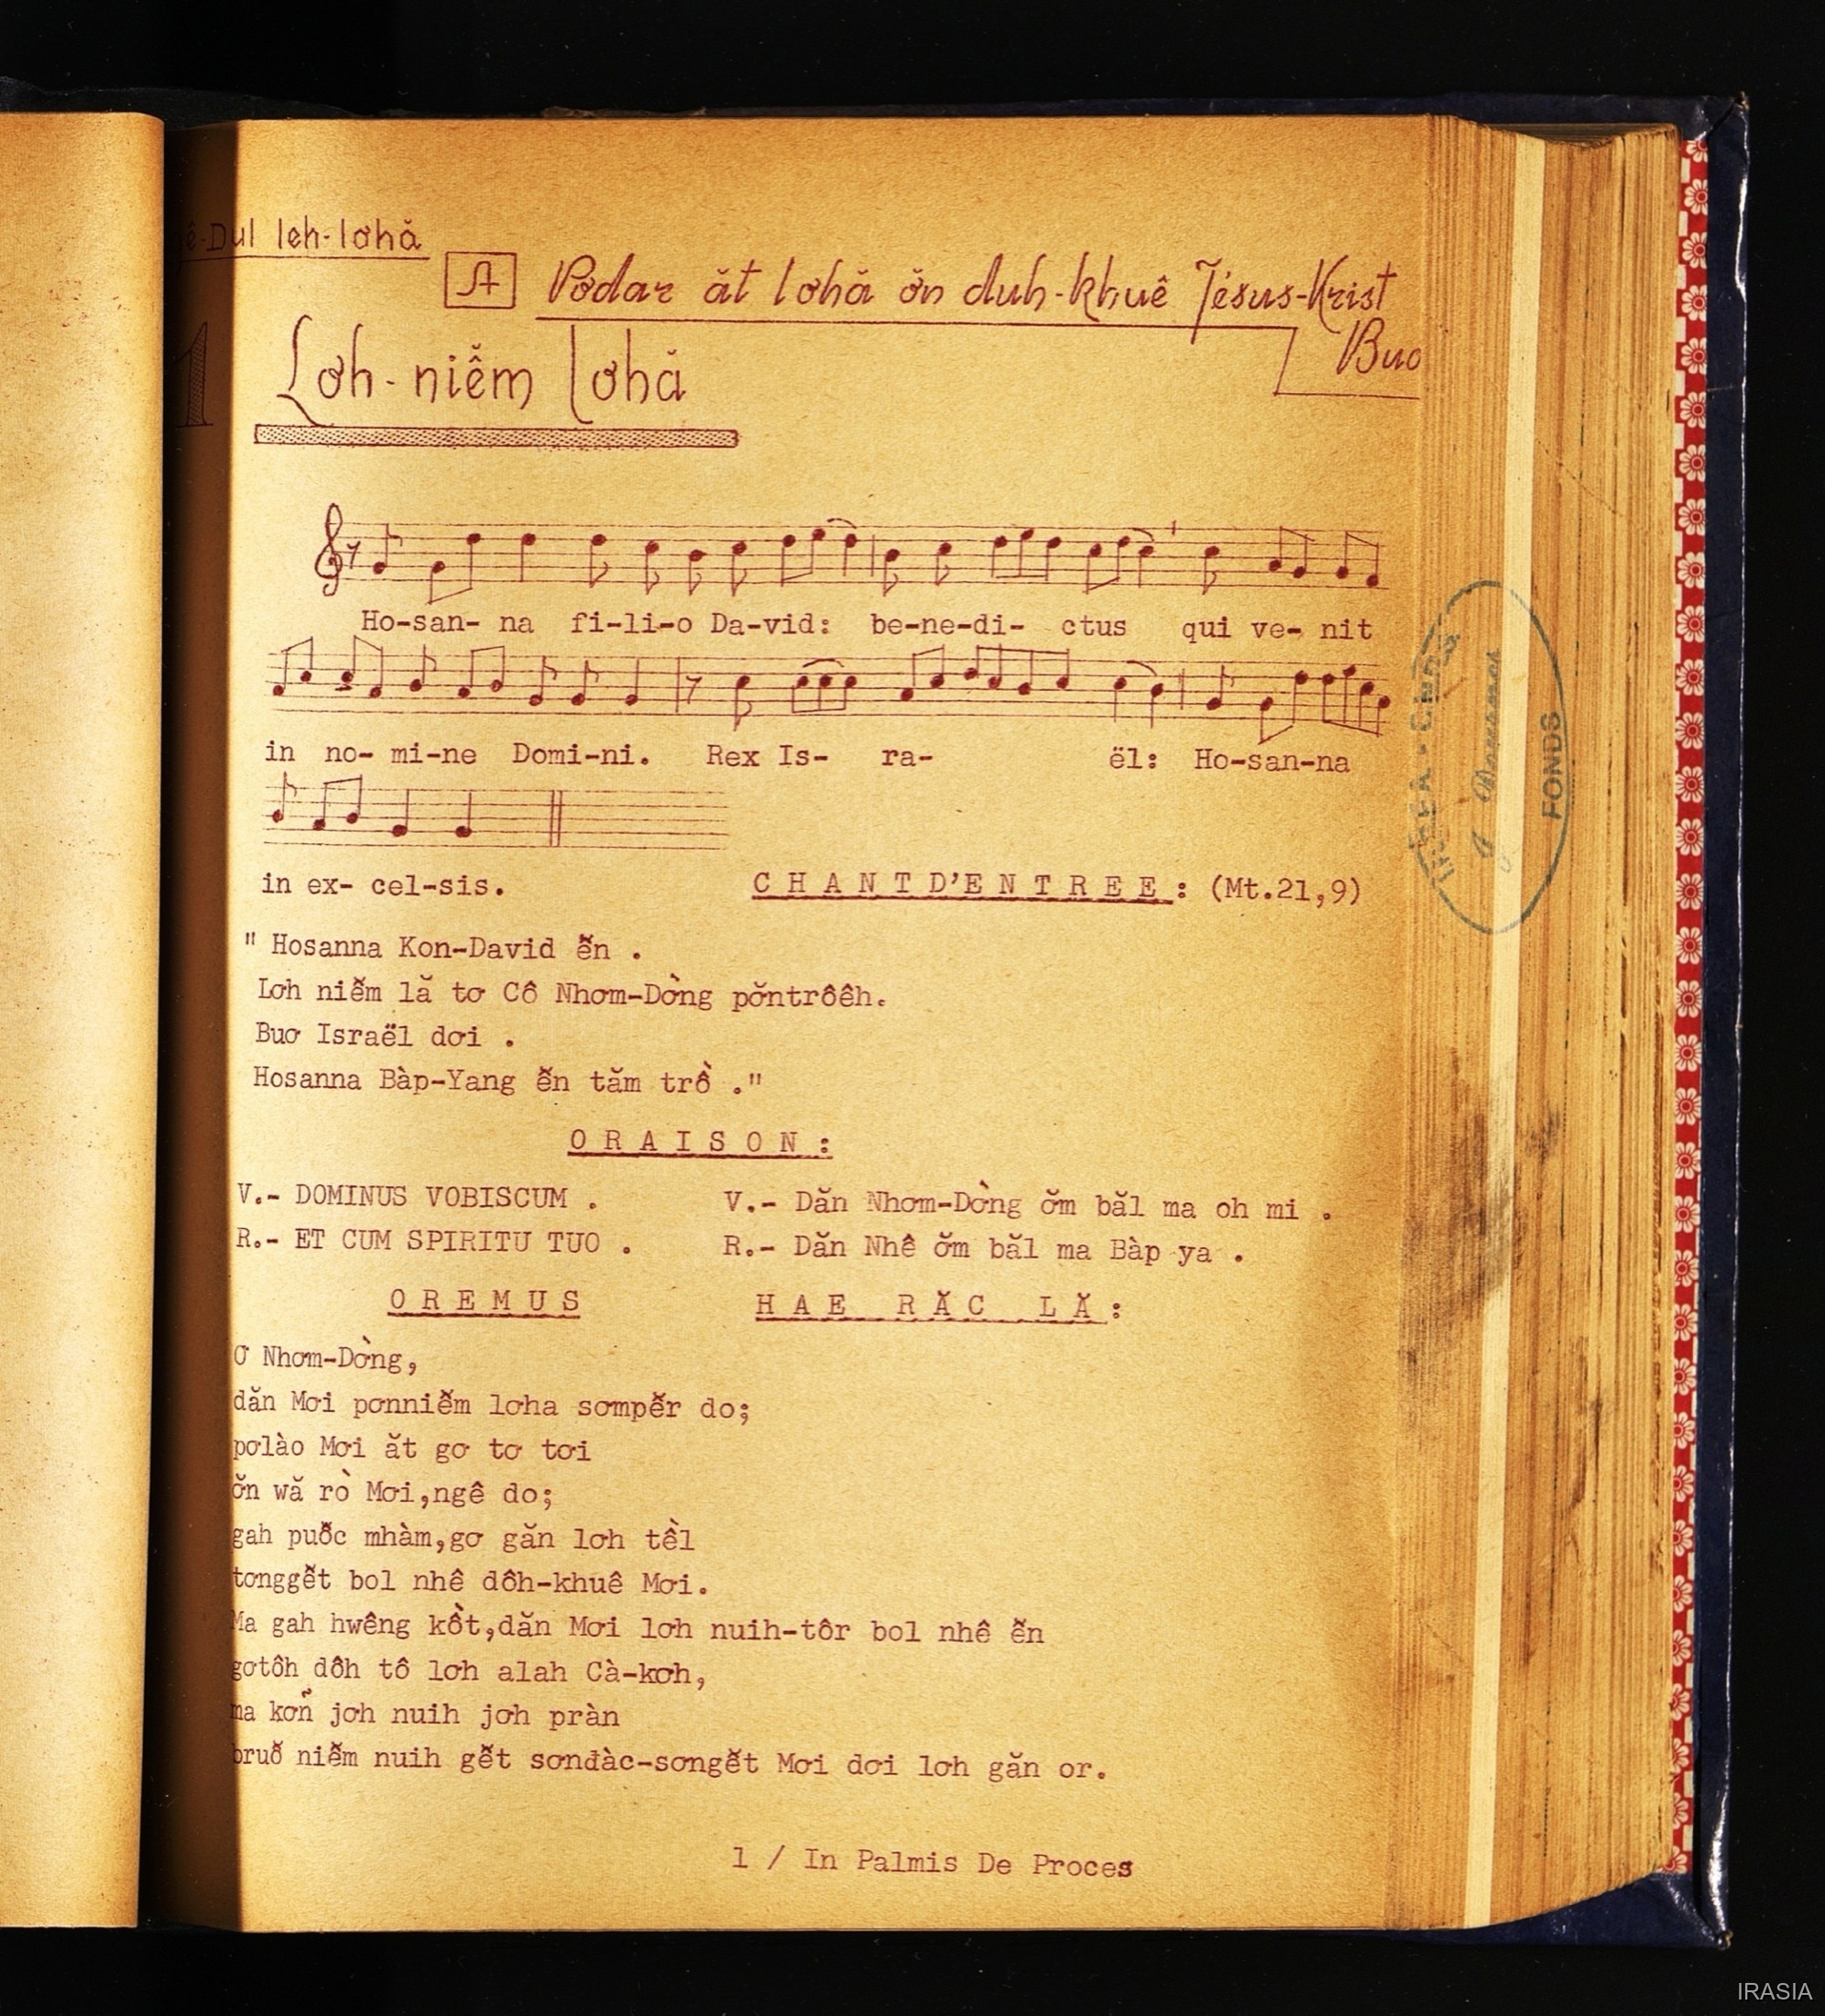 Dul leh-lơhă
A Pơdar ăt lơhă ơ̆n duh-khuê Jésus-Krist
Buơ
1 Lơh-niê̆m lơhă
Ho-san- na fi-li-o Da-vid: be-ne-di- ctus qui ve- nit
in no- mi-ne Domi-ni. Rex Is- ra- ël: Ho-san-na
in ex- cel-sis. CHANT D'ENTREE: (Mt.21,9)
" Hosanna Kon-David ê̆n .
Lơh niê̆m lă tơ Cô Nhơm-Dờng pơ̆ntrôêh.
Buơ Israël dơi .
Hosanna Bàp-Yang ê̆n tăm trồ ."
ORAISON:
V.- DOMINUS VOBISCUM . V.- Dăn Nhơm-Dờng ơ̆m băl ma oh mi .
R.- ET CUM SPIRITU TUO . R.- Dăn Nhê ơ̆m băl ma Bàp ya .
OREMUS HAE RĂC LĂ:
Ơ Nhơm-Dờng,
dăn Mơi pơnniê̆m lơha sơmpê̆r do;
pơlào Mơi ăt gơ tơ tơi
ơ̆n wă rò Mơi,ngê do;
gah puô̆c mhàm,gơ găn lơh tềl
tơnggê̆t bol nhê dôh-khuê Mơi.
Ma gah hwêng kồt,dăn Mơi lơh nuih-tôr bol nhê ê̆n
gơtôh dôh tô lơh alah Cà-kơh,
ma kơñ jơh nuih jơh pràn
bruô̆ niê̆m nuih gê̆t sơnđàc-sơngê̆t Mơi dơi lơh găn or.
1 / In Palmis De Proces
FONDS
IRASIA